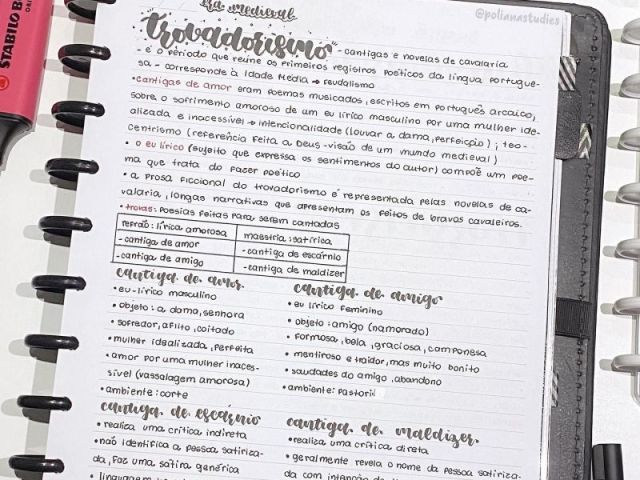 era medieval
@polianastudies
STABILO BO
ORIG
trovadorismo - cantigas e novelas de cavalaria
- é o período que reúne os primeiros registros poéticos da língua portugue-
sa - corresponde à Idade Média → feudalismo
• cantigas de amor eram poemas musicados, escritos em português arcaico,
sobre o sofrimento amoroso de um eu lírico masculino por uma mulher ide-
alizada e inacessível → intencionalidade (louvar a dama, perfeição) ; teo-
centrismo (referência feita a Deus - visão de um mundo medieval)
• o eu lírico (sujeito que expressa os sentimentos do autor) compõe um poe-
ma que trata do fazer poético
• a prosa ficcional do trovadorismo é representada pelas novelas de ca-
valaria, longas narrativas que apresentam os feitos de bravos cavaleiros.
• trovas: poesias feitas para serem cantadas
refrão: lírica amorosa
maestria: satírica
- cantiga de amor
- cantiga de escárnio
- cantiga de amigo
- cantiga de maldizer
cantiga de amor
• eu-lírico masculino
• objeto: a dama, senhora
• sofredor, aflito, coitado
• mulher idealizada, perfeita
• amor por uma mulher inaces-
sível (vassalagem amorosa)
• ambiente: corte
cantiga de amigo
• eu lírico feminino
• objeto: amigo (namorado)
• formosa, bela, graciosa, camponesa
• mentiroso e traidor, mas muito bonito
• saudades do amigo, abandono
• ambiente: pastoril
cantiga de escárnio
• realiza uma crítica indireta
• não identifica a pessoa satiriza-
da, faz uma sátira genérica
• linguagem
cantiga de maldizer
• realiza uma crítica direta
• geralmente revela o nome da pessoa satiriza-
da com intenção de